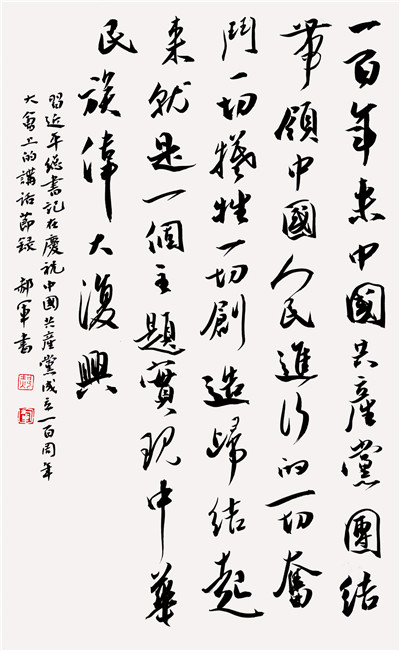 一百年来中國共産黨團結
帶領中國人民進行的一切奮
鬥一切犧牲一切創造歸結起
来就是一個主題實現中華
民族偉大復興
習近平總書記在慶祝中國共産黨成立一百周年
大會上的講話節録 郝軍書